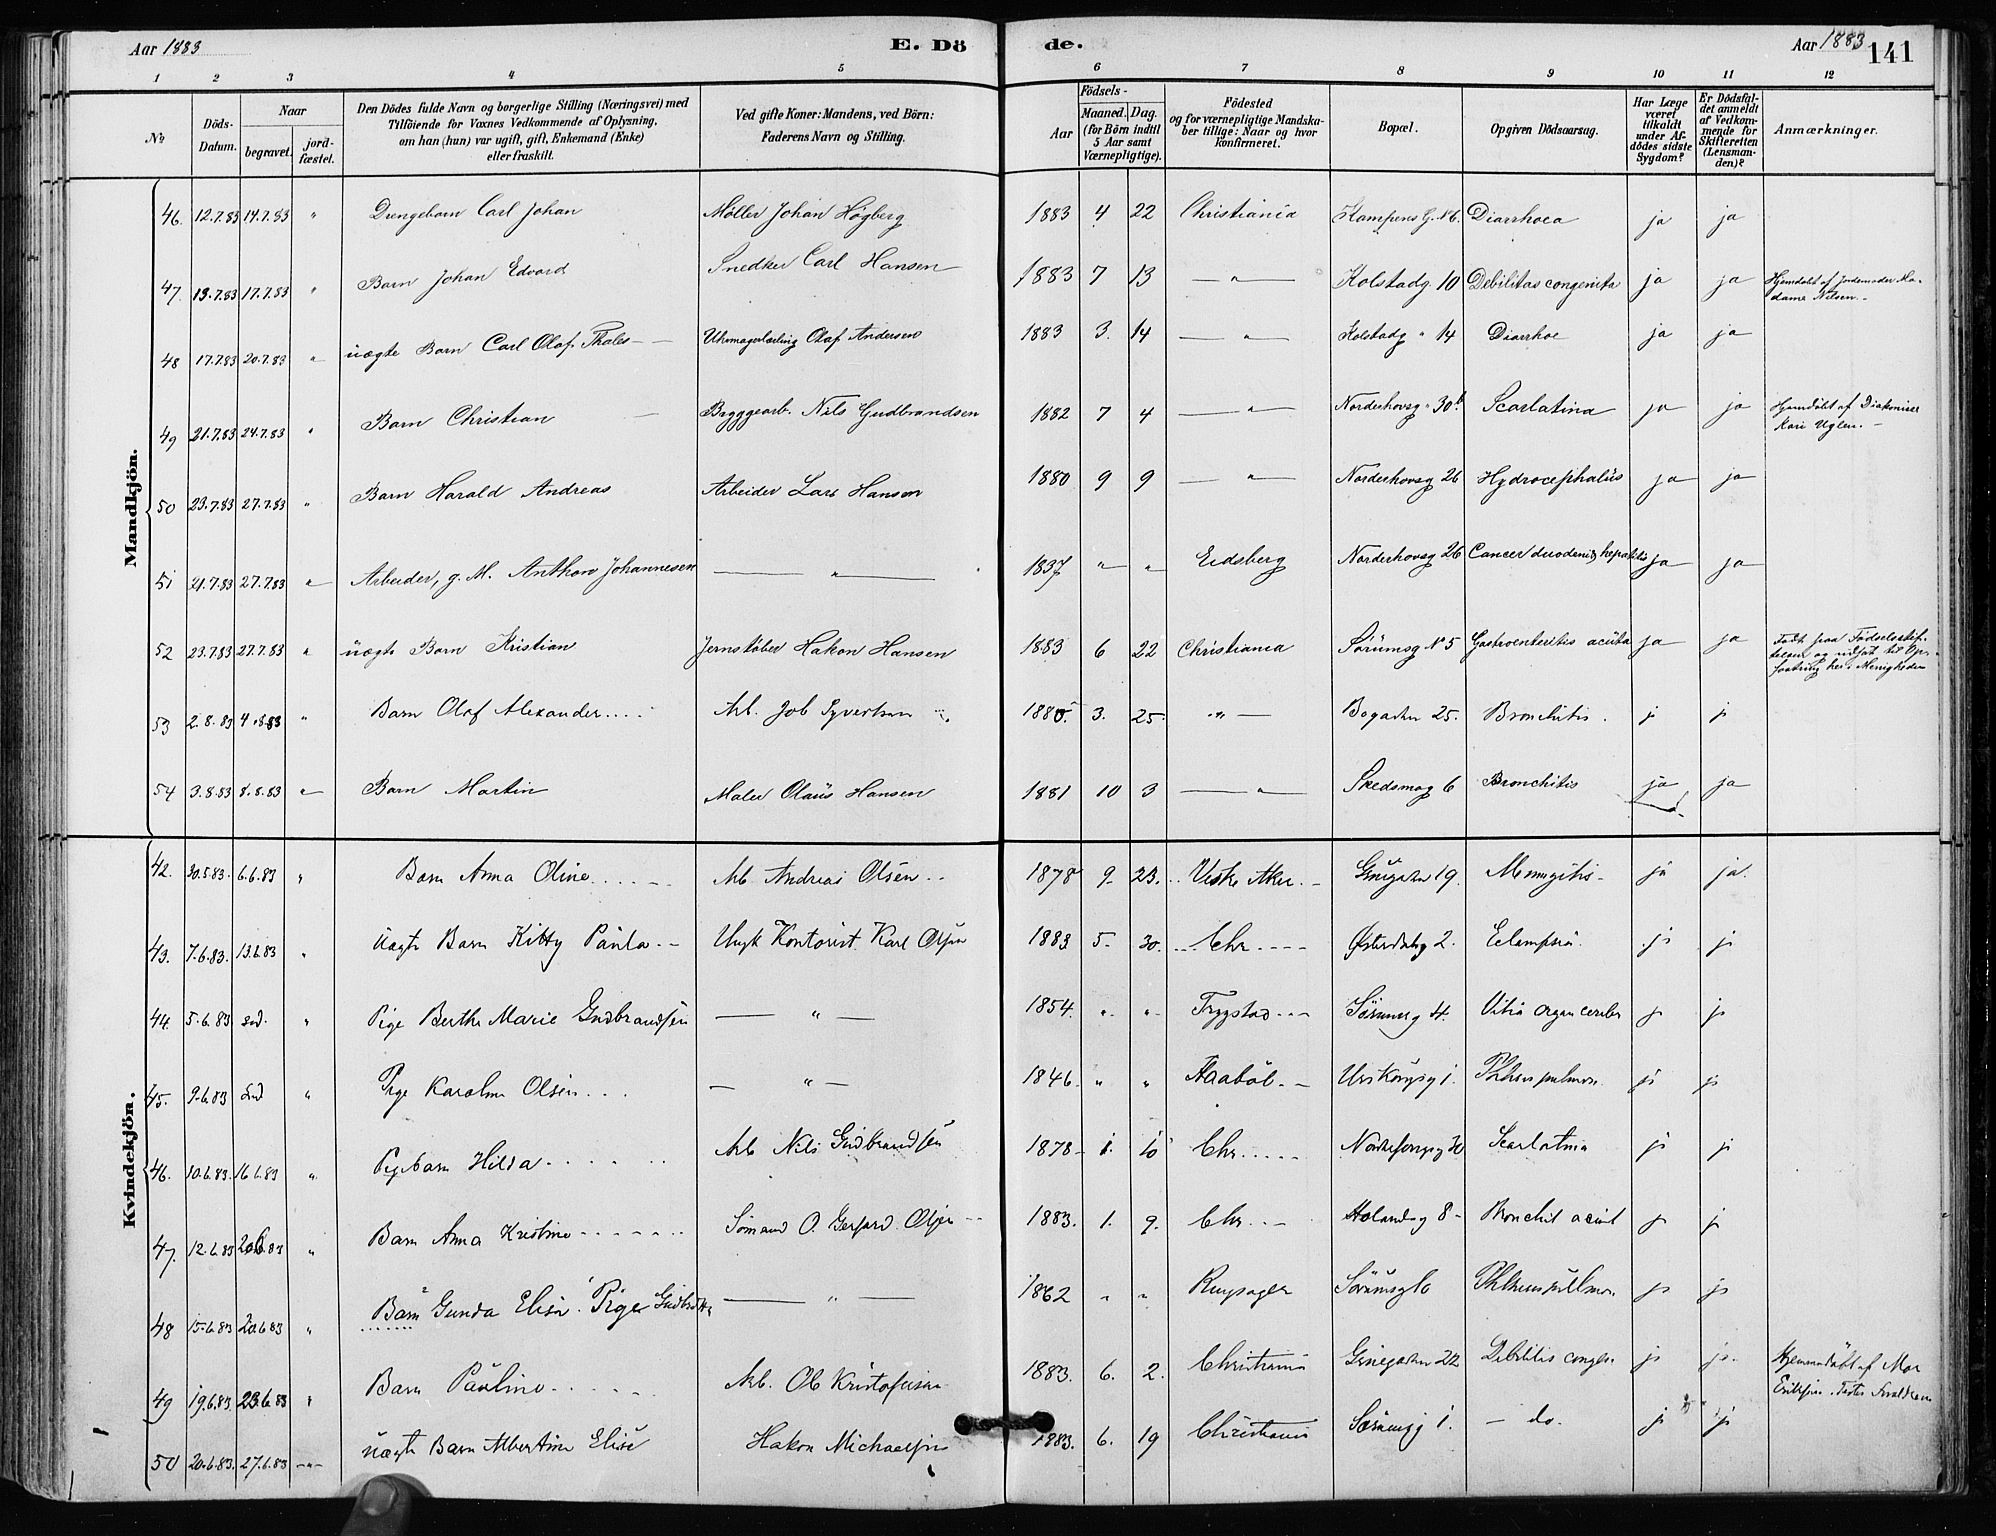 Aar 1883 E. Dö de. Aar 1883 141
1 2 3 4 5 6 7 8 9 10 11 12
No
Döds-Datum.
Naar
begravet.
jord-fæstet.
Den Dödes fulde Navn og borgerlige Stilling (Næringsvei) med
Tilföiende for Voxnes Vedkommende af Oplysning,
om han (hun) var ugift, gift, Enkemand (Enke)
eller fraskilt.
Ved gifte Koner: Mandens, ved Börn:
Faderens Navn og Stilling.
Födsels-
Aar
Maaned. Dag.
(for Börn indtil
5 Aar samt
Værnepligtige).
Födested
og for værnepligtige Mandska-
ber tillige: Naar og hvor
konfirmeret.
Bopæl.
Opgiven Dödsaarsag.
Har Læge
været
tilkaldt
under Af-
dödes sidste
Sygdom?
Er Dödsfal-
det anmeldt
af Vedkom-
mende for
Skifteretten
(Lensman-
den)?
Anmærkninger.
Mandkjön.
46. 12.7.83 14.7.83 " Drengebarn Carl Johan Møller Johan Høgberg 1883 4 22 Christiania Kampens G. N 6. Diarrhoea ja ja
47. 13.7.83 17.7.83 " Barn Johan Edvard Snedker Carl Hansen 1883 7 13 — " — Kolstadg. 10 Debilitas congenita ja ja Hjemdøbt af Jordemoder Ma-
dame Nilsen. -
48 17.7.83 20.7.83 " uægte Barn Carl Olaf Thales - Uhrmagerlærling Olaf Andersen 1883 3. 14 — " — Kolstadg " 14 Diarrhoe ja ja
49 21.7.83 24.7.83 " Barn Christian Byggearb. Nils Gudbrandsen 1882 7 4 — " — Norderhovsg " 30b Scarlatina ja ja Hjemdøbt af Diakonisse
Kari Uglen. -
50 23.7.83 27.7.83 " Barn Harald Andreas Arbeider Lars Hansen 1880 9 9 — " — Norderhovsg 26 Hydrocephalus ja ja
51 21.7.83 27.7.83 " Arbeider, g. M. Anthon Johannesen — " — 1837 " " Eidsberg Norderhovsg 26 Cancer duodeni & hepatitis ja ja
52 23.7.83 27.7.83 " uægte Barn Kristian Jernstøber Hakon Hansen 1883 6 22 Christiania Sørumsg N 5 Gastroenteritis acuta ja ja Født paa Fødselsstif-
telsen og udsat til Op-
fostring her i Menigheden
53 2.8.83 4.8.83 " Barn Olaf Alexander.... Arb. Job Syvertsen 3. 25. " — Bogaden 25. Bronchitis. j j
54 3.8.83 8.8.83 " Barn Martin Maler Olaus Hansen 1881 10 3 — " — Skedsmog 6 Bronchitis ja ja
Kvindekjön.
42. 30.5.83. 6.6.83 " Barn Anna Oline..... Arb. Andreas Olsen.. 1878 9. 23. Vestre Aker. - Grügaden 19. Meningitis - ja ja.
43. 7.6.83. 13.6.83 " uægte Barn Kitty Paula.- Ungk Kontorist Karl Olsen 1883 5. 30. Chr.... Østerdalsg 2. Eclampsia. ja j
44. 5.6.83 " Pige Berthe Marie Gudbrandsen — " — 1854. " " Trygstad... Sørumsg 4. Vitia organ cerebr j j
45. 9.6.83 " Pige Karoline Olsen... — " — 1846. " " Aaabøl. - Urskougsg 1. Phthisis pulmon. j j
46. 10.6.83. 16.6.83 " Pigebarn Hilda..... Arb Nils Gudbrandsen 1878 - 1. 10 Chr..... Norderhovsg 30 Scarlatina j j
47. 12.6.83 20.6.83 " Barn Anna Kristine....... Sømand O. Gerhard Olsen 1883. 1. 9. Chr... Hølandsg 8 - Bronchit acut j j
48 15.6.83 20.6.83 " Barn Gunda Elise. Pige — " — 1862 " " Sørumsg 6 Phthisis pulmon j j
49 19.6.83. 23.6.83 " Barn Pauline..... Arb. Ole Kristofersen 1883. 6. 2. Christiania Grüegaden 22 Debilitis congen. j j. Hjemmedøbt af Mor
50 20.6.83. 27.6.83 -"- uægte Barn Albertine Elise Hakon Michaelsen 1883. 6. 19 Christiania Sørumsg 1. — do. j j